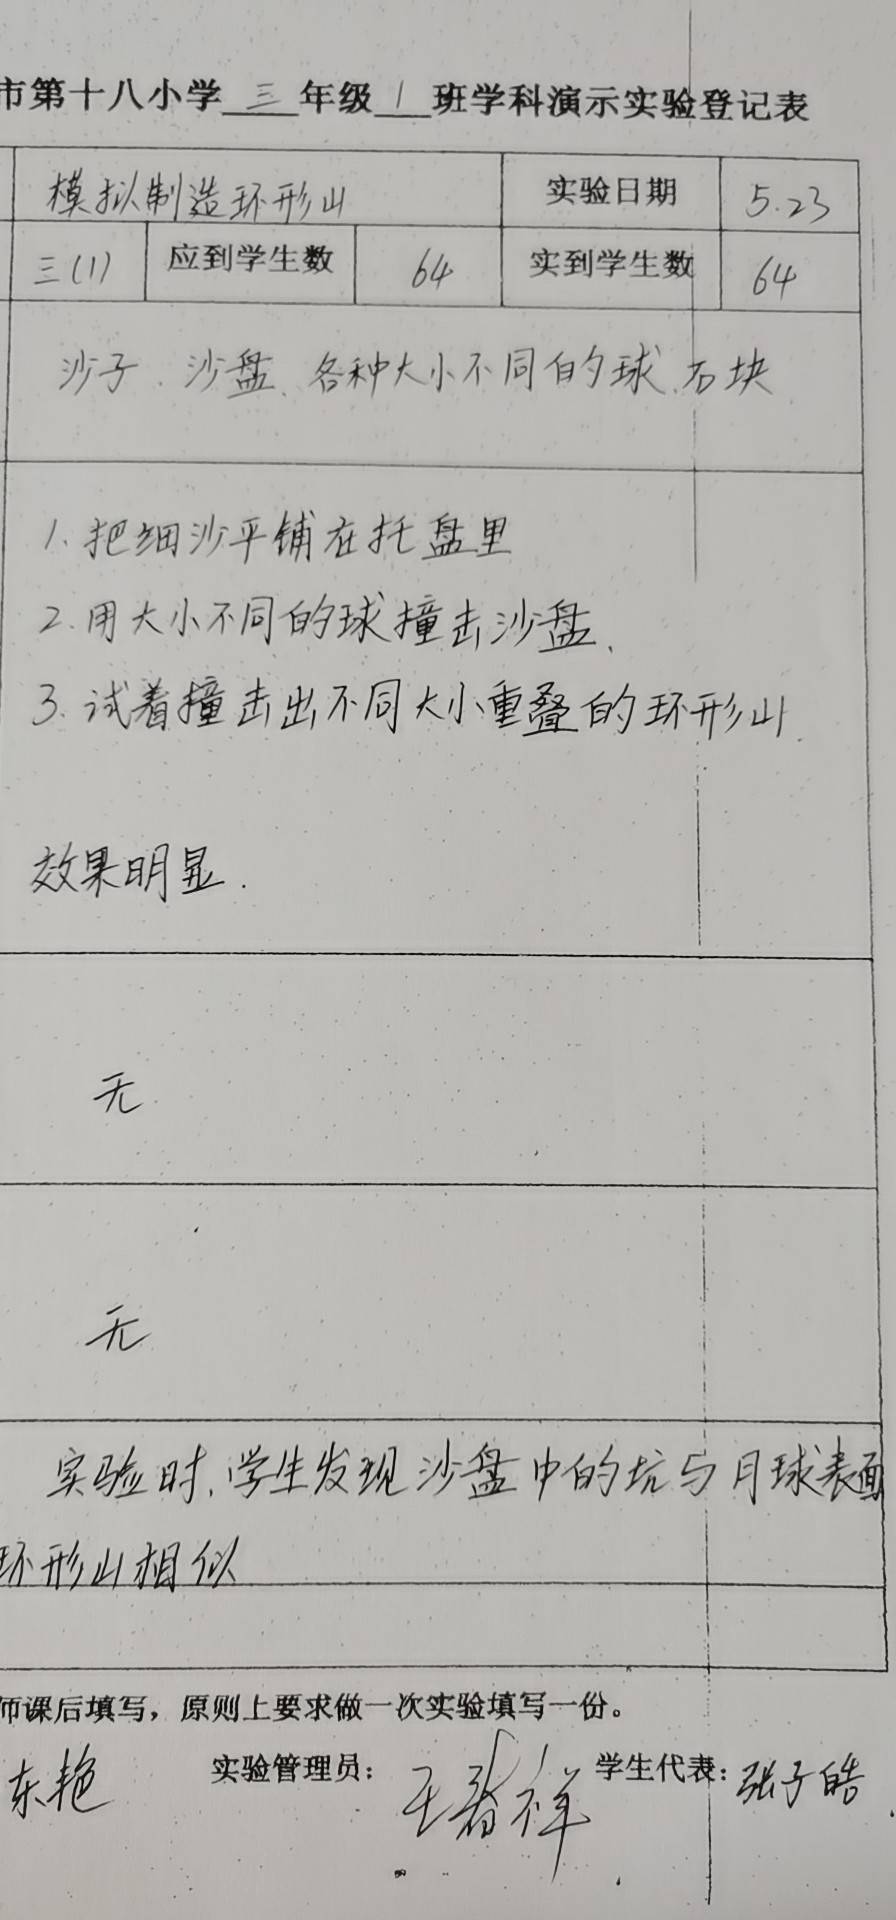 市第十八小学三年级1班学科演示实验登记表
模拟制造环形山 实验日期 5.23
三(1) 应到学生数 64 实到学生数 64
沙子、沙盘、各种大小不同的球、石块
1.把细沙平铺在托盘里
2.用大小不同的球撞击沙盘、
3.试着撞击出不同大小重叠的环形山.
效果明显.
无
无
实验时,学生发现沙盘中的坑与月球表面
环形山相似
师课后填写，原则上要求做一次实验填写一份。
东艳 实验管理员： 王春祥 学生代表：张子皓